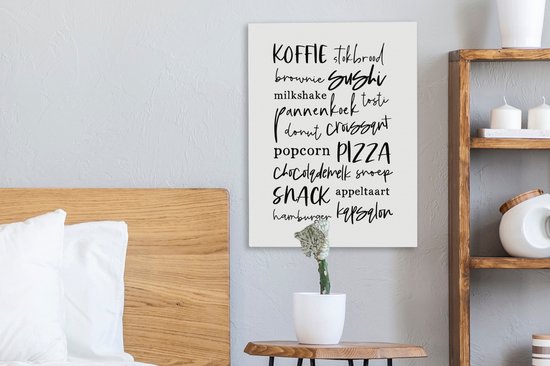 KOFFIE stokbrood
brownie sushi
milkshake tosti
pannenkoek
donut croissant
popcorn PIZZA
chocolademelk snoep
SNACK appeltaart
hamburger kapsalon